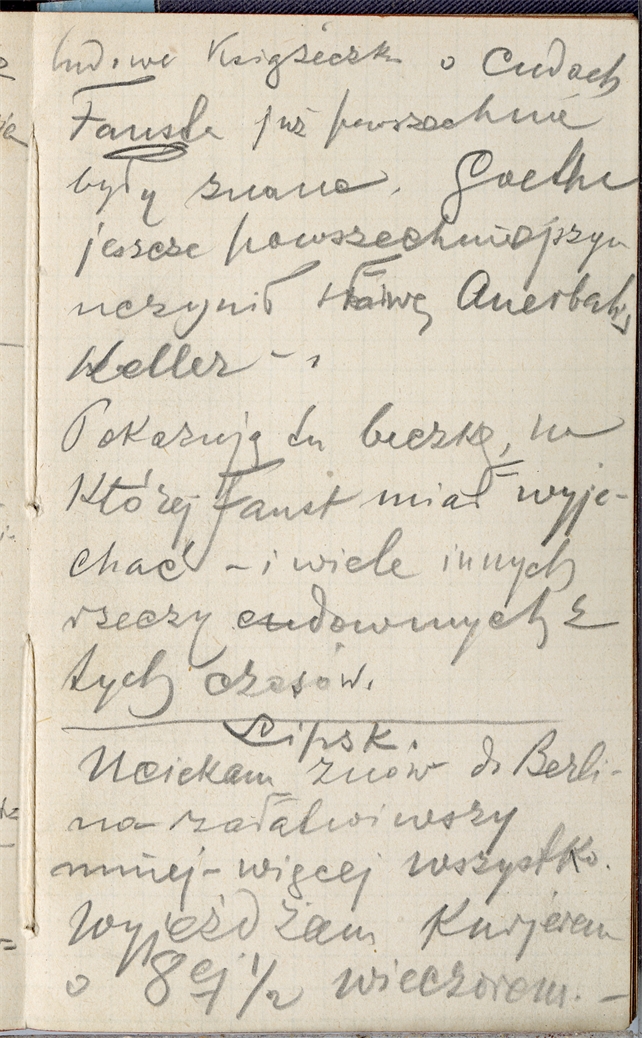 ludowe Książeczk o Cudach
Fausta już powszechnie
były znane. Goethe
jeszcze powszechniejszym
uczynił sławę Auerbahs
Keller –
Pokazują tu beczkę, na
Której Faust miał wyje-
chać – i wiele innych
rzeczy cudownych z
tych czasów.
Lipsk.
Uciekam znów do Berli-
na załatwiwszy
mniej-więcej wszystko.
Wyjeżdżam Kurjerem
o 8ej ½ wieczorem. –